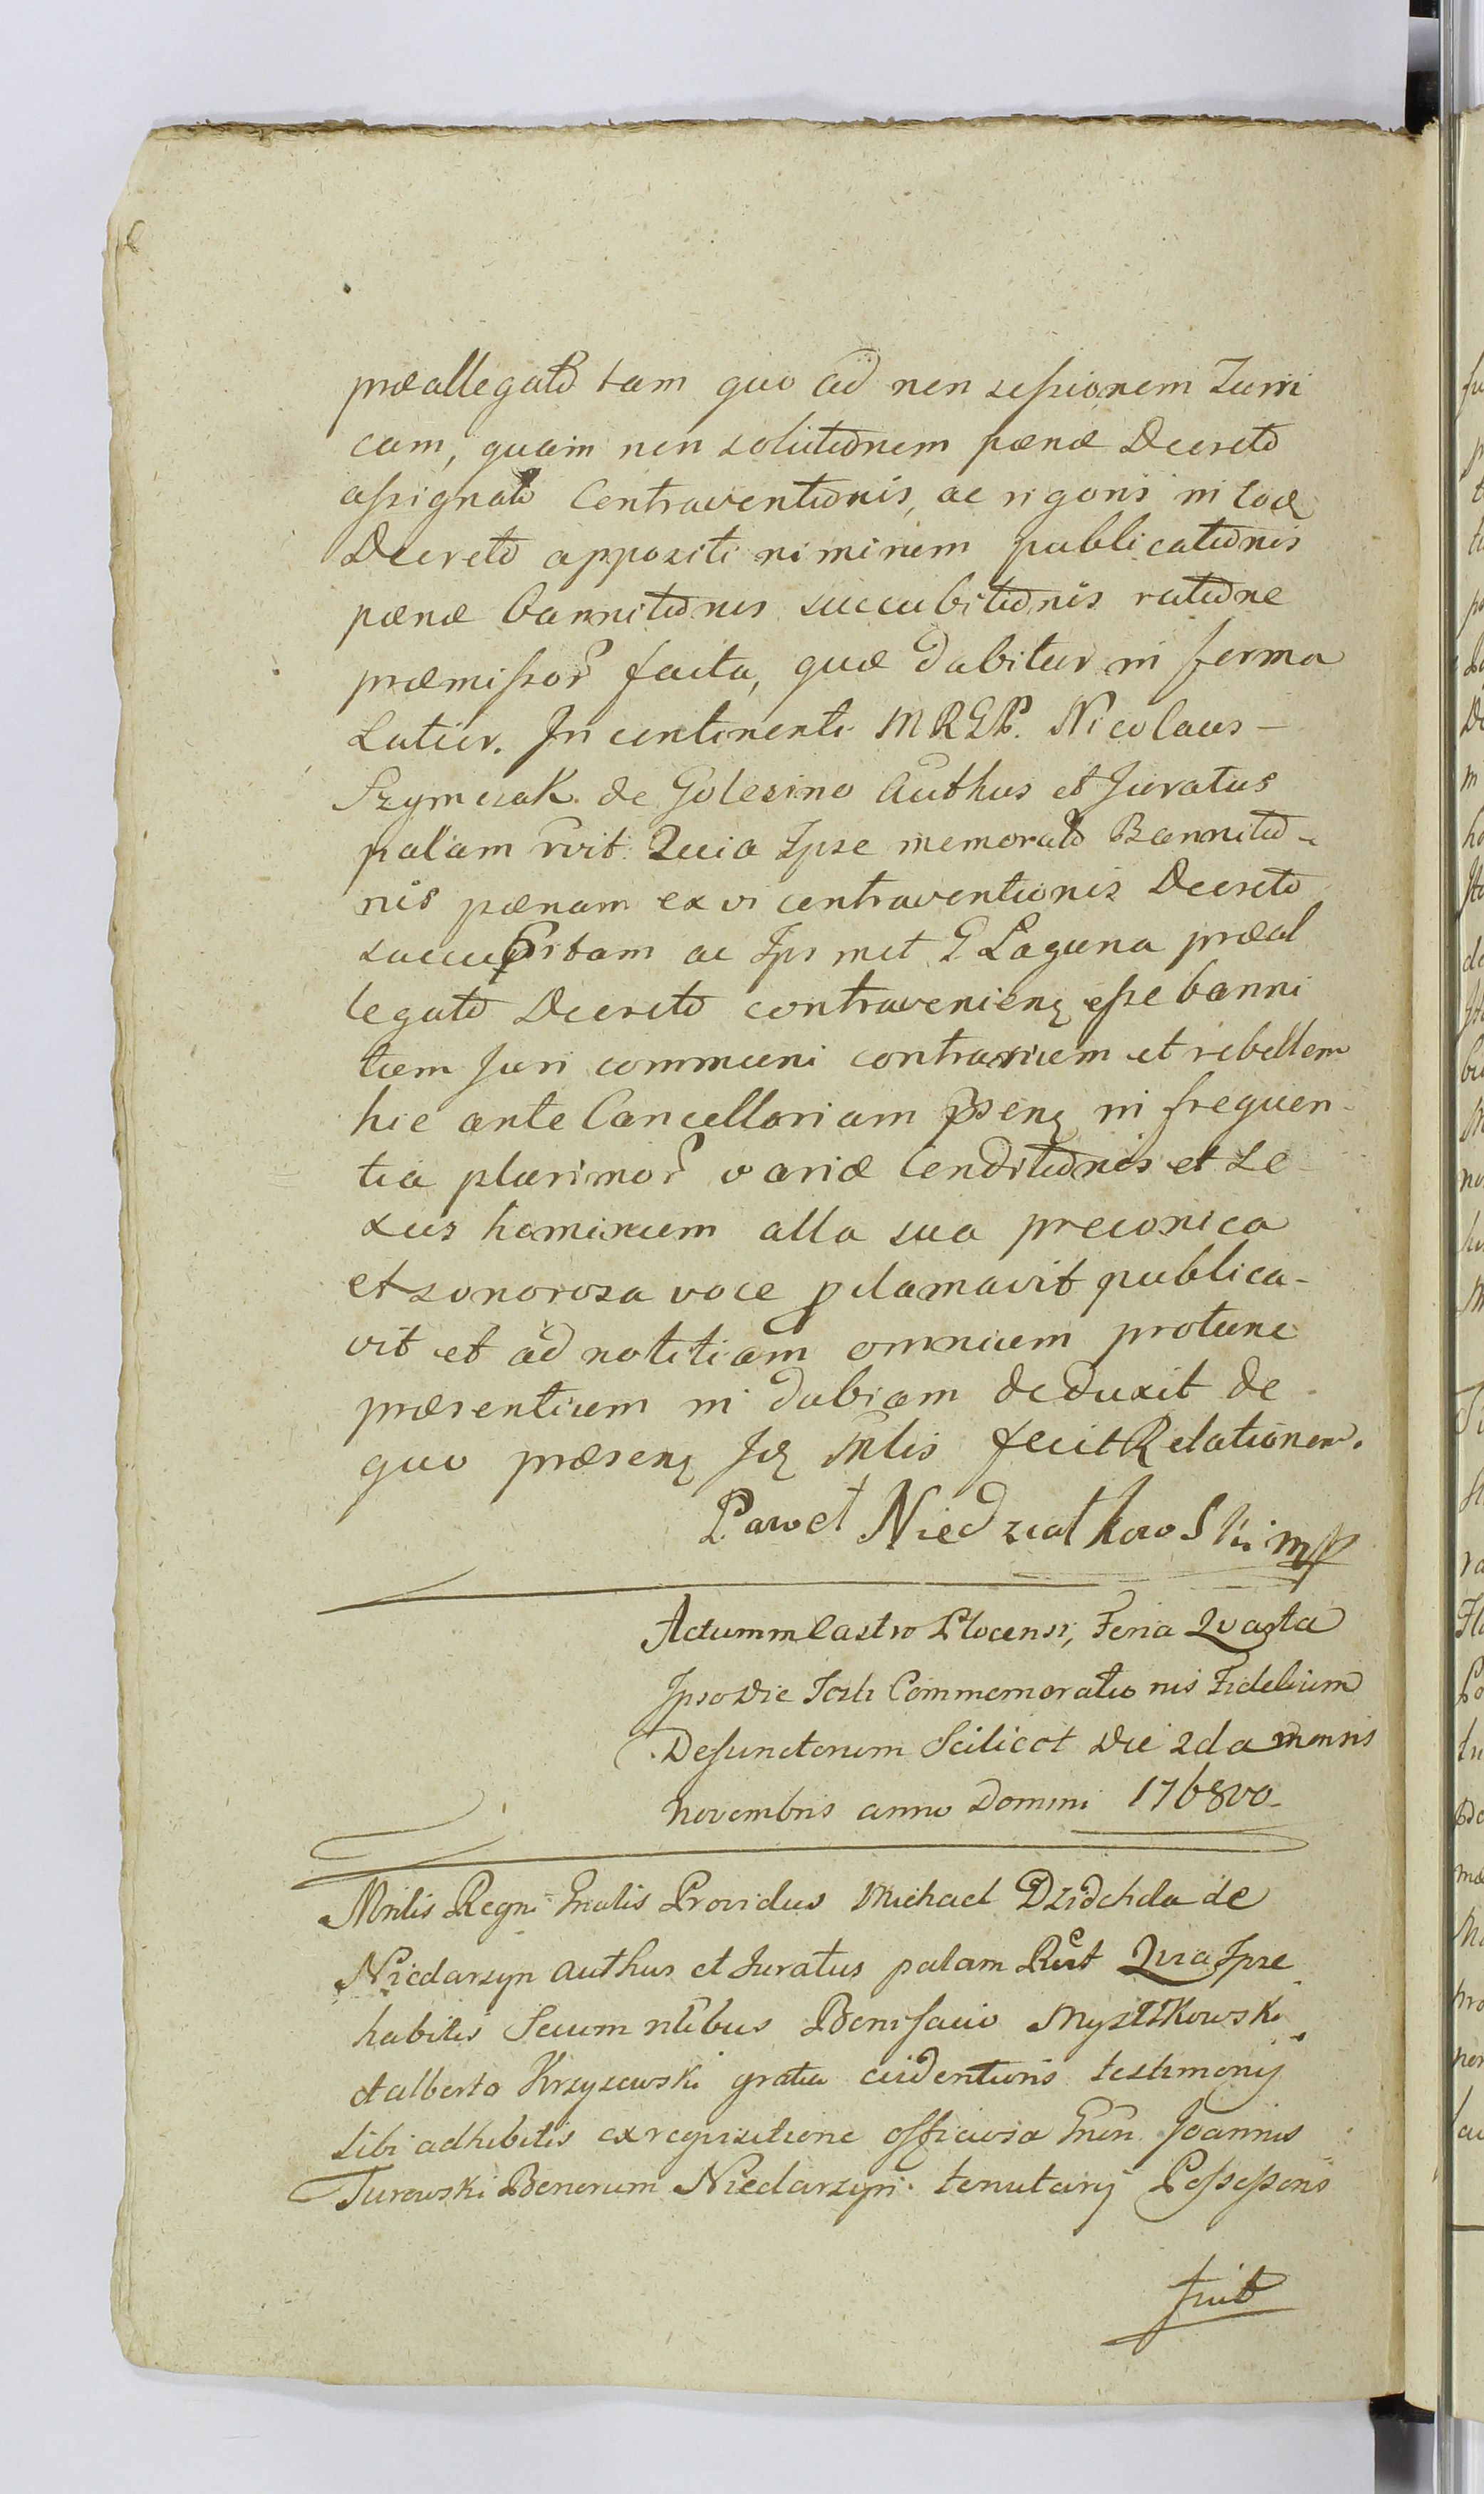 præallegato tam quo ad non sessionem Turri
cam, quam non solutionem pænæ Decreto
assignato Contraventionis, ac rigoris in eod
Decreto appositi niminum publicationis
pænæ bannitionis succubitionis ratione
præmissor facta, quæ dabitur in forma
Latiur. In continenti MRGP. Nicolaus –
Szymczak de Golesino Authus et Juratus
palam rvit Quia Ipse memorato Bannitio-
nis pænam ex vi contraventionis Decreto
succubitam ac Ips met G Laguna præal
legato Decreto contravenienę esse banni
tum Juri communi contrarium et rebellem
hic ante Cancellariam psenę in frequen-
tia plurimor variæ Conditionis et Se-
xus hominum alta sua preconica
et sonorosa voce pclamavit publica-
vit et ad notitiam omnium protunc
præsentium in dubiam deduxit de
quo præsenę Ję Mlis fecit Relationem.
Paweł Niedziałkowski mp
Actum in Castro Plocensi, Feria Quarta
Ipso die Festi Commemorationis Fidelium
Defunctorum Scilicet die 2da mensis
novembris anno Domini 1768vo.
Mnlis Regni Gnalis Providus Michael Dzidehda de
Niedarzyn authus et Juratus palam Rect Quia Ipse
habitis Secum nlibus Bonifacio Mystkowski
et alberto Krzyzewski gratia evidentioris testimonij
sibi adhibitis ex requisitione officiosa Gnen Joannis
Turowski Bonorum Niedarzyn tenutarij Possessoris
fuit